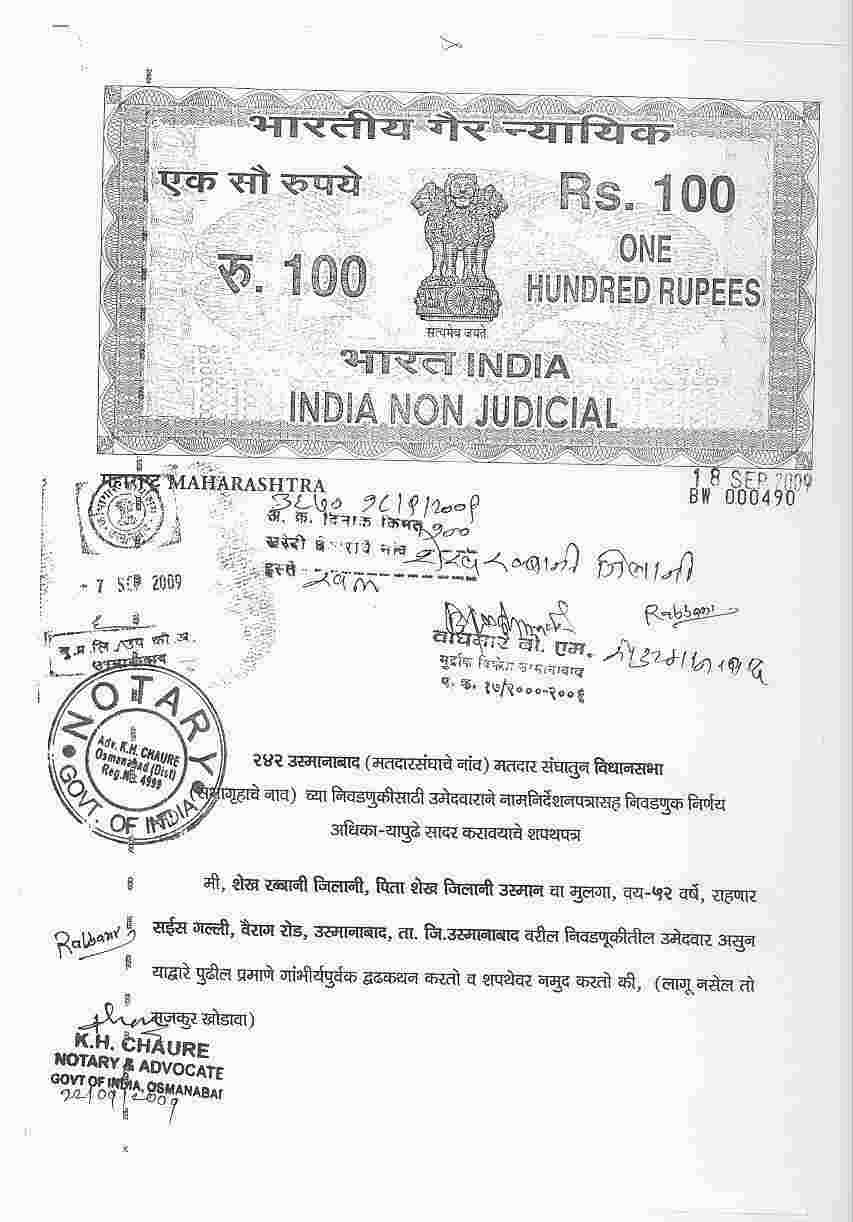 भारतीय गैर न्यायिक
एक सौ रुपये
Rs. 100
रु. 100
ONE
HUNDRED RUPEES
सत्यमेव जयते
भारत INDIA
INDIA NON JUDICIAL
महाराष्ट्र MAHARASHTRA
18 SEP 2009
BW 000490
३६७० १८/९/२००९
अ. क्र. दिनांक किंमत १००
खरेदी नांव शेख रब्बानी जिलानी
हस्ते
7 SEP 2009
Rabbani
वाघकारे बी. एम.
मुद्रांक विक्रेता उस्मानाबाद
प. क्र. १७/२०००-२००६
NOTARY
Adv. K.H. CHAURE
Osmanabad (Dist)
Reg.No. 4999
GOVT. OF INDIA
२४२ उस्मानाबाद (मतदारसंघाचे नांव) मतदार संघातुन विधानसभा
(सभागृहाचे नाव) च्या निवडणुकीसाठी उमेदवाराने नामनिर्देशनपत्रासह निवडणुक निर्णय
अधिका-यापुढे सादर करावयाचे शपथपत्र
मी, शेख रब्बानी जिलानी, पिता शेख जिलानी उस्मान चा मुलगा, वय-५२ वर्षे, राहणार
सईस गल्ली, वैराग रोड, उस्मानाबाद, ता. जि.उस्मानाबाद वरील निवडणूकीतील उमेदवार असुन
Rabbani
याद्वारे पुढील प्रमाणे गांभीर्यपुर्वक द्वढकथन करतो व शपथेवर नमुद करतो की, (लागू नसेल तो
मजकुर खोडावा)
K.H. CHAURE
NOTARY & ADVOCATE
GOVT OF INDIA, OSMANABAD
22/09/2009